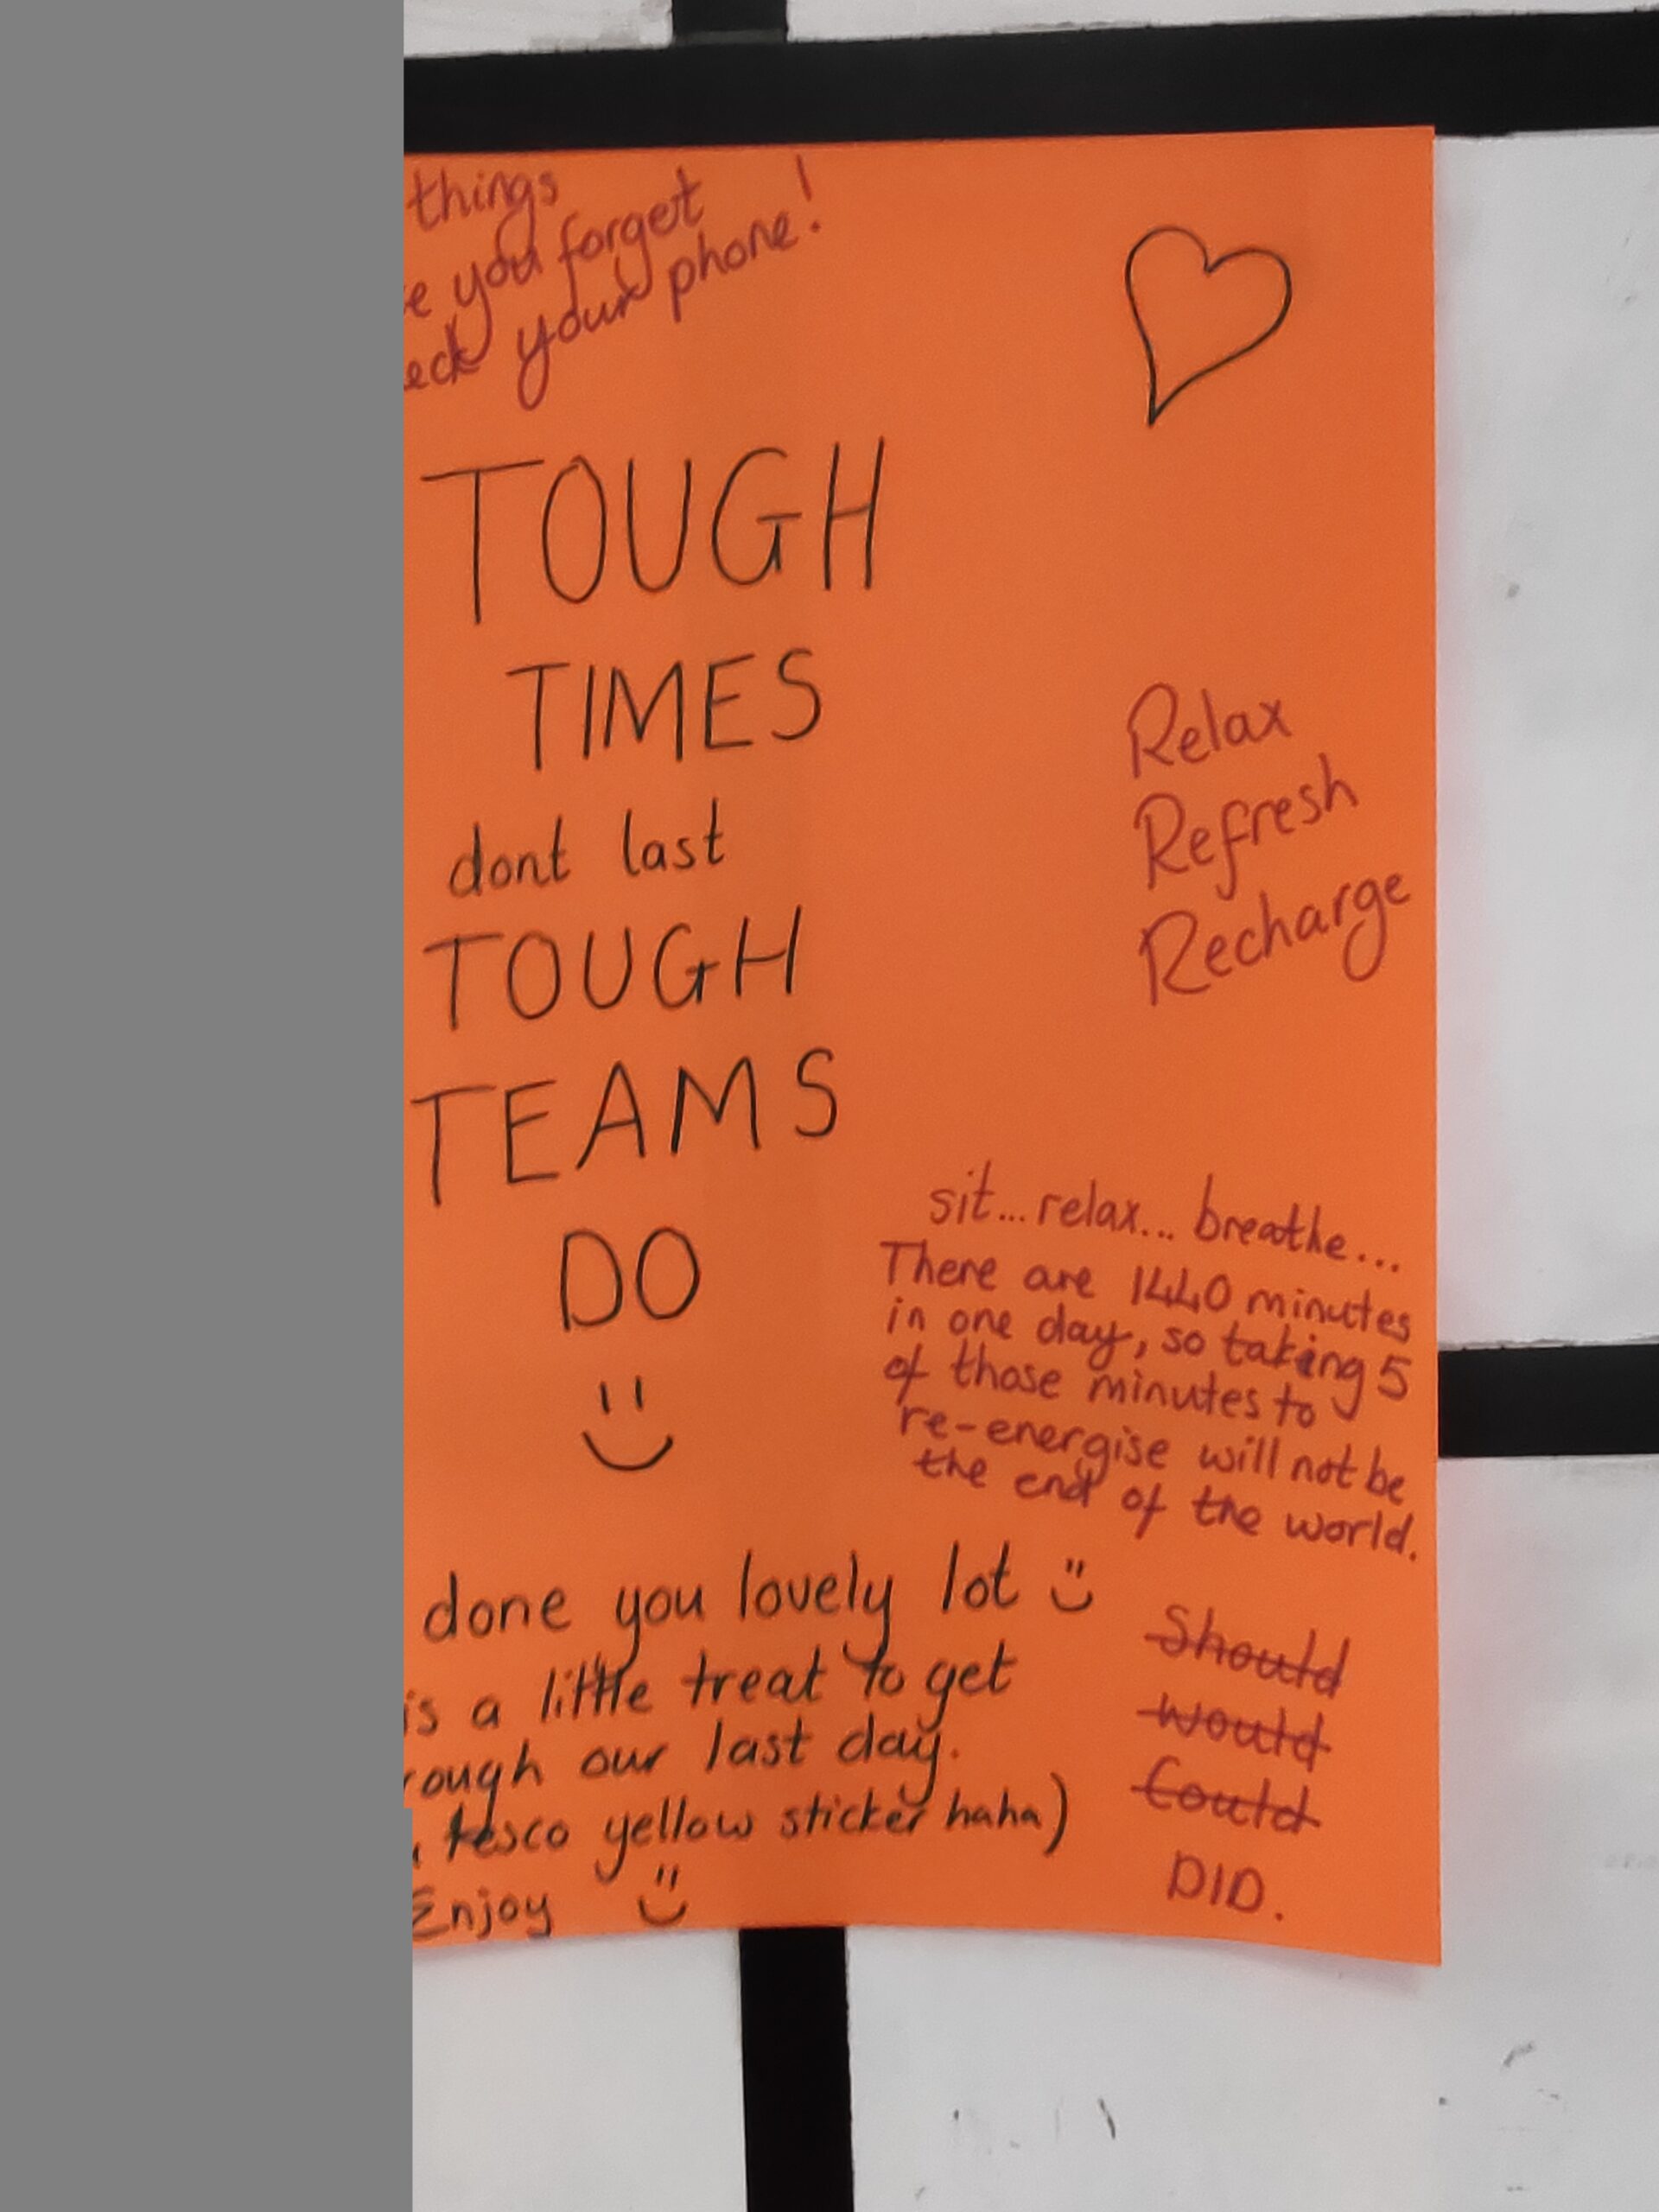 things
you forget
your phone!
TOUGH
TIMES
dont last
TOUGH
TEAMS
DO
Relax
Refresh
Recharge
sit... relax... breathe...
There are 1440 minutes
in one day, so taking 5
of those minutes to
re-energise will not be
the end of the world.
done you lovely lot
is a little treat to get
our last day.
tesco yellow sticker haha)
Enjoy
Should
Would
Could
DID.